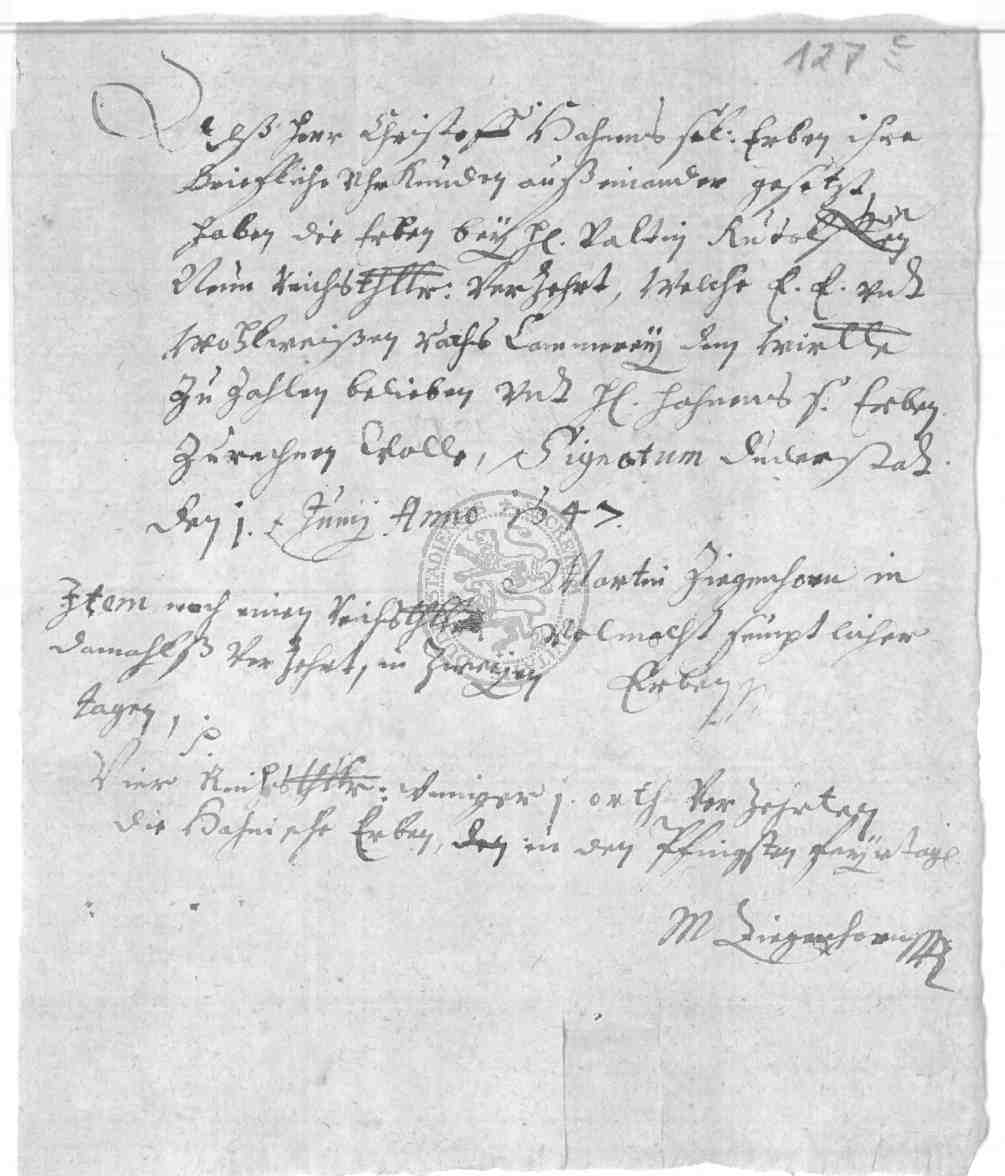 127 c
Alß Herr Christoff Hahnens sel: Erben ihre
Briefliche Uhrkunden außeinander gesetzt,
haben die Erben beÿ H. Valtin
Neun Reichsthllr: Verzehrt, Welche E. E. undt
Wohlweißen Rahts Cammereÿ dem Wirtte
Zu Zahlen belieben undt H. Hahnens s. Erben
Zurechnen Wolle, Signatum Duderstadt
den 1. Junij Anno 1647.
Martin Ziegenhorn in
Volmacht sempt licher
Erben
Item noch einen Reichsthllr
damahlß Verzehrt, in Zweÿen
tagen,
Vier Reichsthllr: weniger j. orth Verzehrten
die Hahnische Erben, den in den Pfingsten feÿrtage
M Ziegenhorn